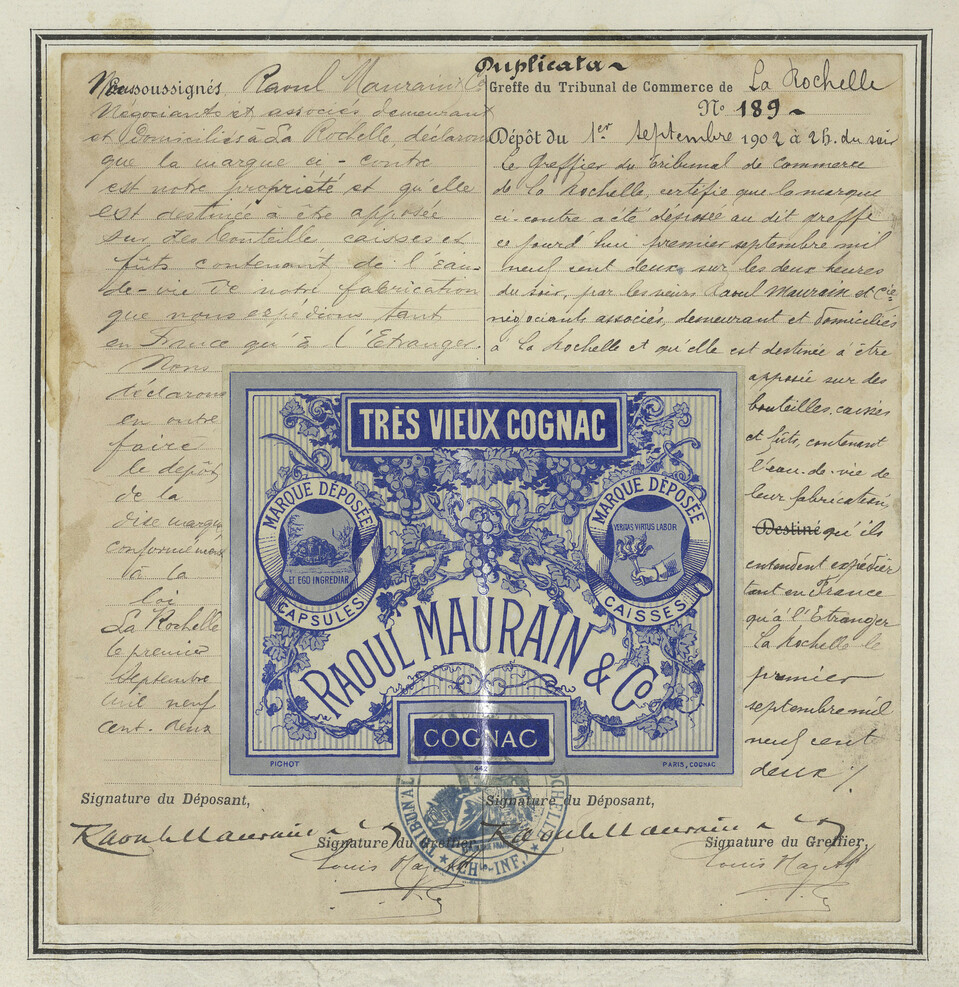 Nous soussignés, Raoul Maurain & Co
négociants et associés demeurant
et domiciliés à La Rochelle, déclarons
que la marque ci-contre
est notre propriété et qu'elle
est destinée à être apposée
sur des bouteille caisses et
fûts contenant de l'eau-
de-vie de notre fabrication
que nous expédions tant
en France qu'à l'Etranger.
Nous
déclarons
en outre
faire
le dépôt
de la
dite marque
conformément
à la
loi
La Rochelle
le premier
Septembre
mil neuf
cent. deux
Duplicata
Greffe du Tribunal de Commerce de La Rochelle
No 189
Dépôt du 1er septembre 1902 à 2h. du soir
Le Greffier du Tribunal de Commerce
de La Rochelle, certifie que la marque
ci-contre a été déposée au dit greffe
ce jourd'hui premier septembre mil
neuf cent deux, sur les deux heures
du soir, par les sieurs Raoul Maurain et Cie
négociants associés, demeurant et domiciliés
à La Rochelle et qu'elle est destinée à être
apposée sur des
bouteilles, caisses
et fûts, contenant
l'eau-de-vie de
leur fabrication
Destiné qu'ils
entendent expédier
tant en France
qu'à l'Etranger
La Rochelle le
premier
septembre mil
neuf cent
deux
TRÈS VIEUX COGNAC
MARQUE DÉPOSÉE
ET EGO INGREDIAR
CAPSULES
MARQUE DÉPOSÉE
VERITAS VIRTUS LABOR
CAISSES
RAOUL MAURAIN & Co
COGNAC
PICHOT
442
PARIS, COGNAC
Signature du Déposant,
Signature du Déposant,
Raoul Maurain & Co
Raoul Maurain & Co
Signature du Greffier,
Signature du Greffier,
Louis
Louis
TRIBUNAL
ROCHELLE
CHte-INF.